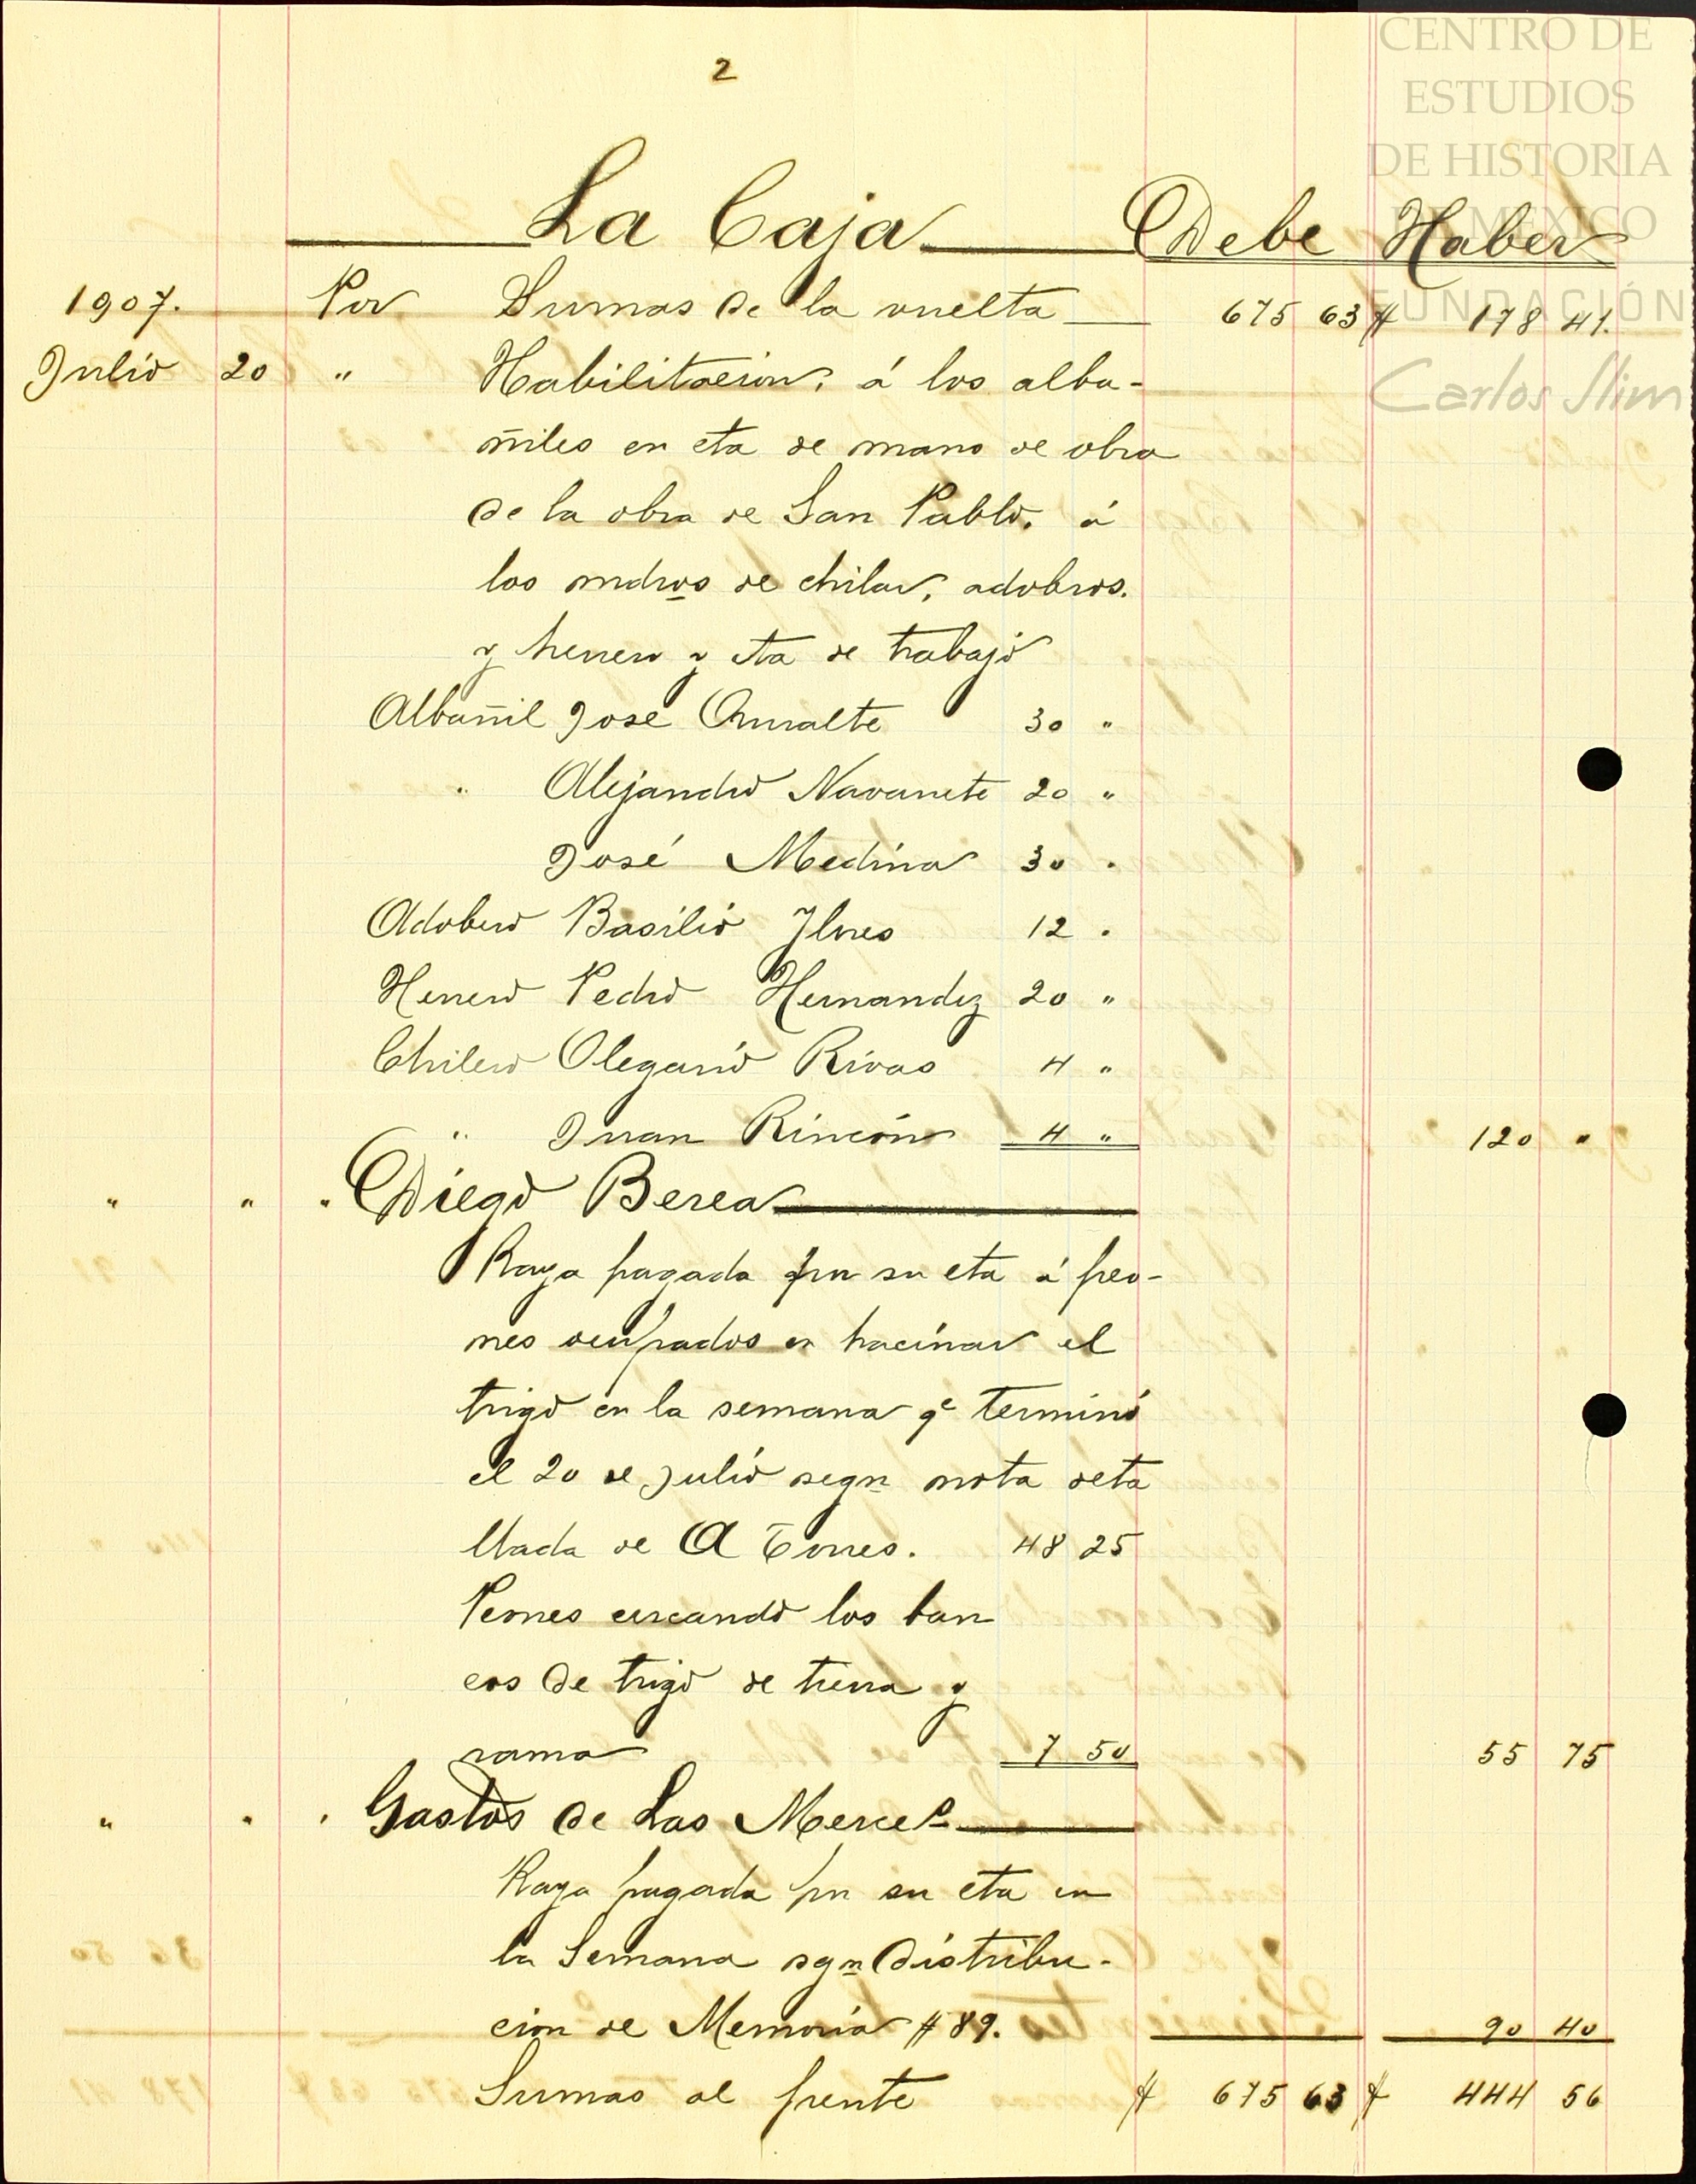 2
CENTRO DE
ESTUDIOS
DE HISTORIA
DE MÉXICO
FUNDACIÓN
Carlos Slim
La Caja Debe Haber
1907. Por Sumas de la vuelta 675 63 $ 178 41.
Julio 20 " Habilitacion, á los alba-
ñiles en cta de mano de obra
de la obra de San Pablo, á
los mdros de chilar, adobros.
y herrero y cta de trabajo
Albañil José 30 "
" Alejandro Navarrete 20 "
José Medina 30 "
Adobero Basilio Flores 12 "
Herrero Pedro Hernandez 20 "
Chilero Olegario Rivas 4 "
" Juan Rincón 4 " 120 "
" " " Diego Berea
Raya pagada por su cta á peo-
nes ocupados en hacinar el
trigo en la semana qe terminó
el 20 de Julio segn nota deta
llada de A Torres. 48 25
Peones cercando los ban
cos de trigo de tierra y
rama 7 50 55 75
" " " Gastos de Las Merces
Raya pagada por su cta en
la Semana sgn distribu-
cion de Memoria # 89. 90 40
Sumas al frente $ 675 63 $ 444 56